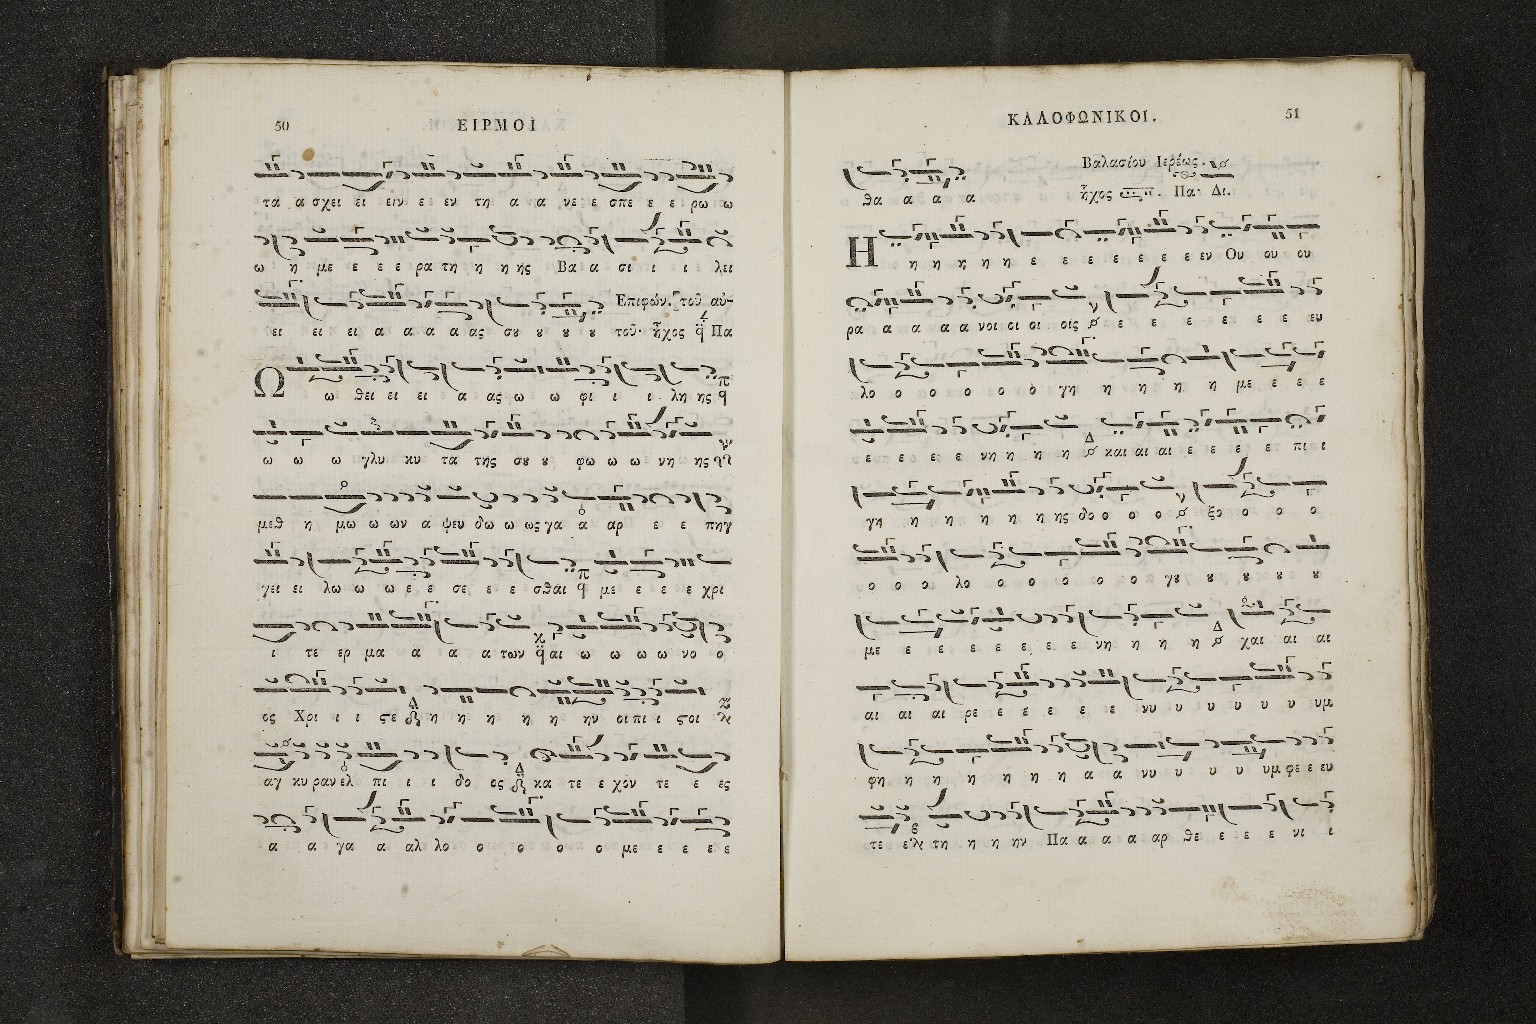 50
ΕΙΡΜΟΙ
τα α σχει ει ειν ε εν τη α α νε ε σπε ε ε ρω ω
ω η με ε ε ε ρα τη η η ης Βα α σι ι ι λει
Ἐπιφών. τοῦ αὐ-
ει ει ει α α α α ας σȣ ȣ ȣ ȣ τοῦ· ἦχος Πα
Ω ω θει ει ει α ας ω ω φι ι ι λη ης
ω ω ω γλυ κυ τα της σȣ ȣ φω ω ω νη ης
μεθ η μω ω ων α ψευ δω ω ως γα α αρ ε ε πηγ
γει ει λω ω ω ε ε σε ε ε σθαι με ε ε ε χρι
ι τε ερ μα α α α των αι ω ω ω ω νο ο
ος Χρι ι ι ϛε η η η η η ην οι πι ι ϛοι
αγ κυ ραν ελ πι ι ι δο ος κα τε ε χον τε ε ες
α α γα α αλ λο ο ο ο ο με ε ε ε ε
ΚΑΛΟΦΩΝΙΚΟΙ.
51
Βαλασίου Ιερέως.
θα α α α ἦχος Πα· Δι.
Η η η η η η ε ε ε ε ε ε ε εν Ου ου ου
ρα α α α α νοι οι οι οις ε ε ε ε ε ε ευ
λο ο ο ο ο ο γη η η η η με ε ε ε
ε ε ε ε νη η η η και αι αι ε ε ε ε πι ι
γη η η η η η ης δο ο ο ο ξο ο ο ο
ο ο ο λο ο ο ο ο ο γȣ ȣ ȣ ȣ ȣ
με ε ε ε ε ε ε ε νη η η η χαι αι αι
αι αι αι ρε ε ε ε ε ε νυ υ υ υ υ υ υμ
φη η η η η η η α α νυ υ υ υ υμ φε ε ευ
τε ε τη η η ην Πα α α α αρ θε ε ε ε νι ι